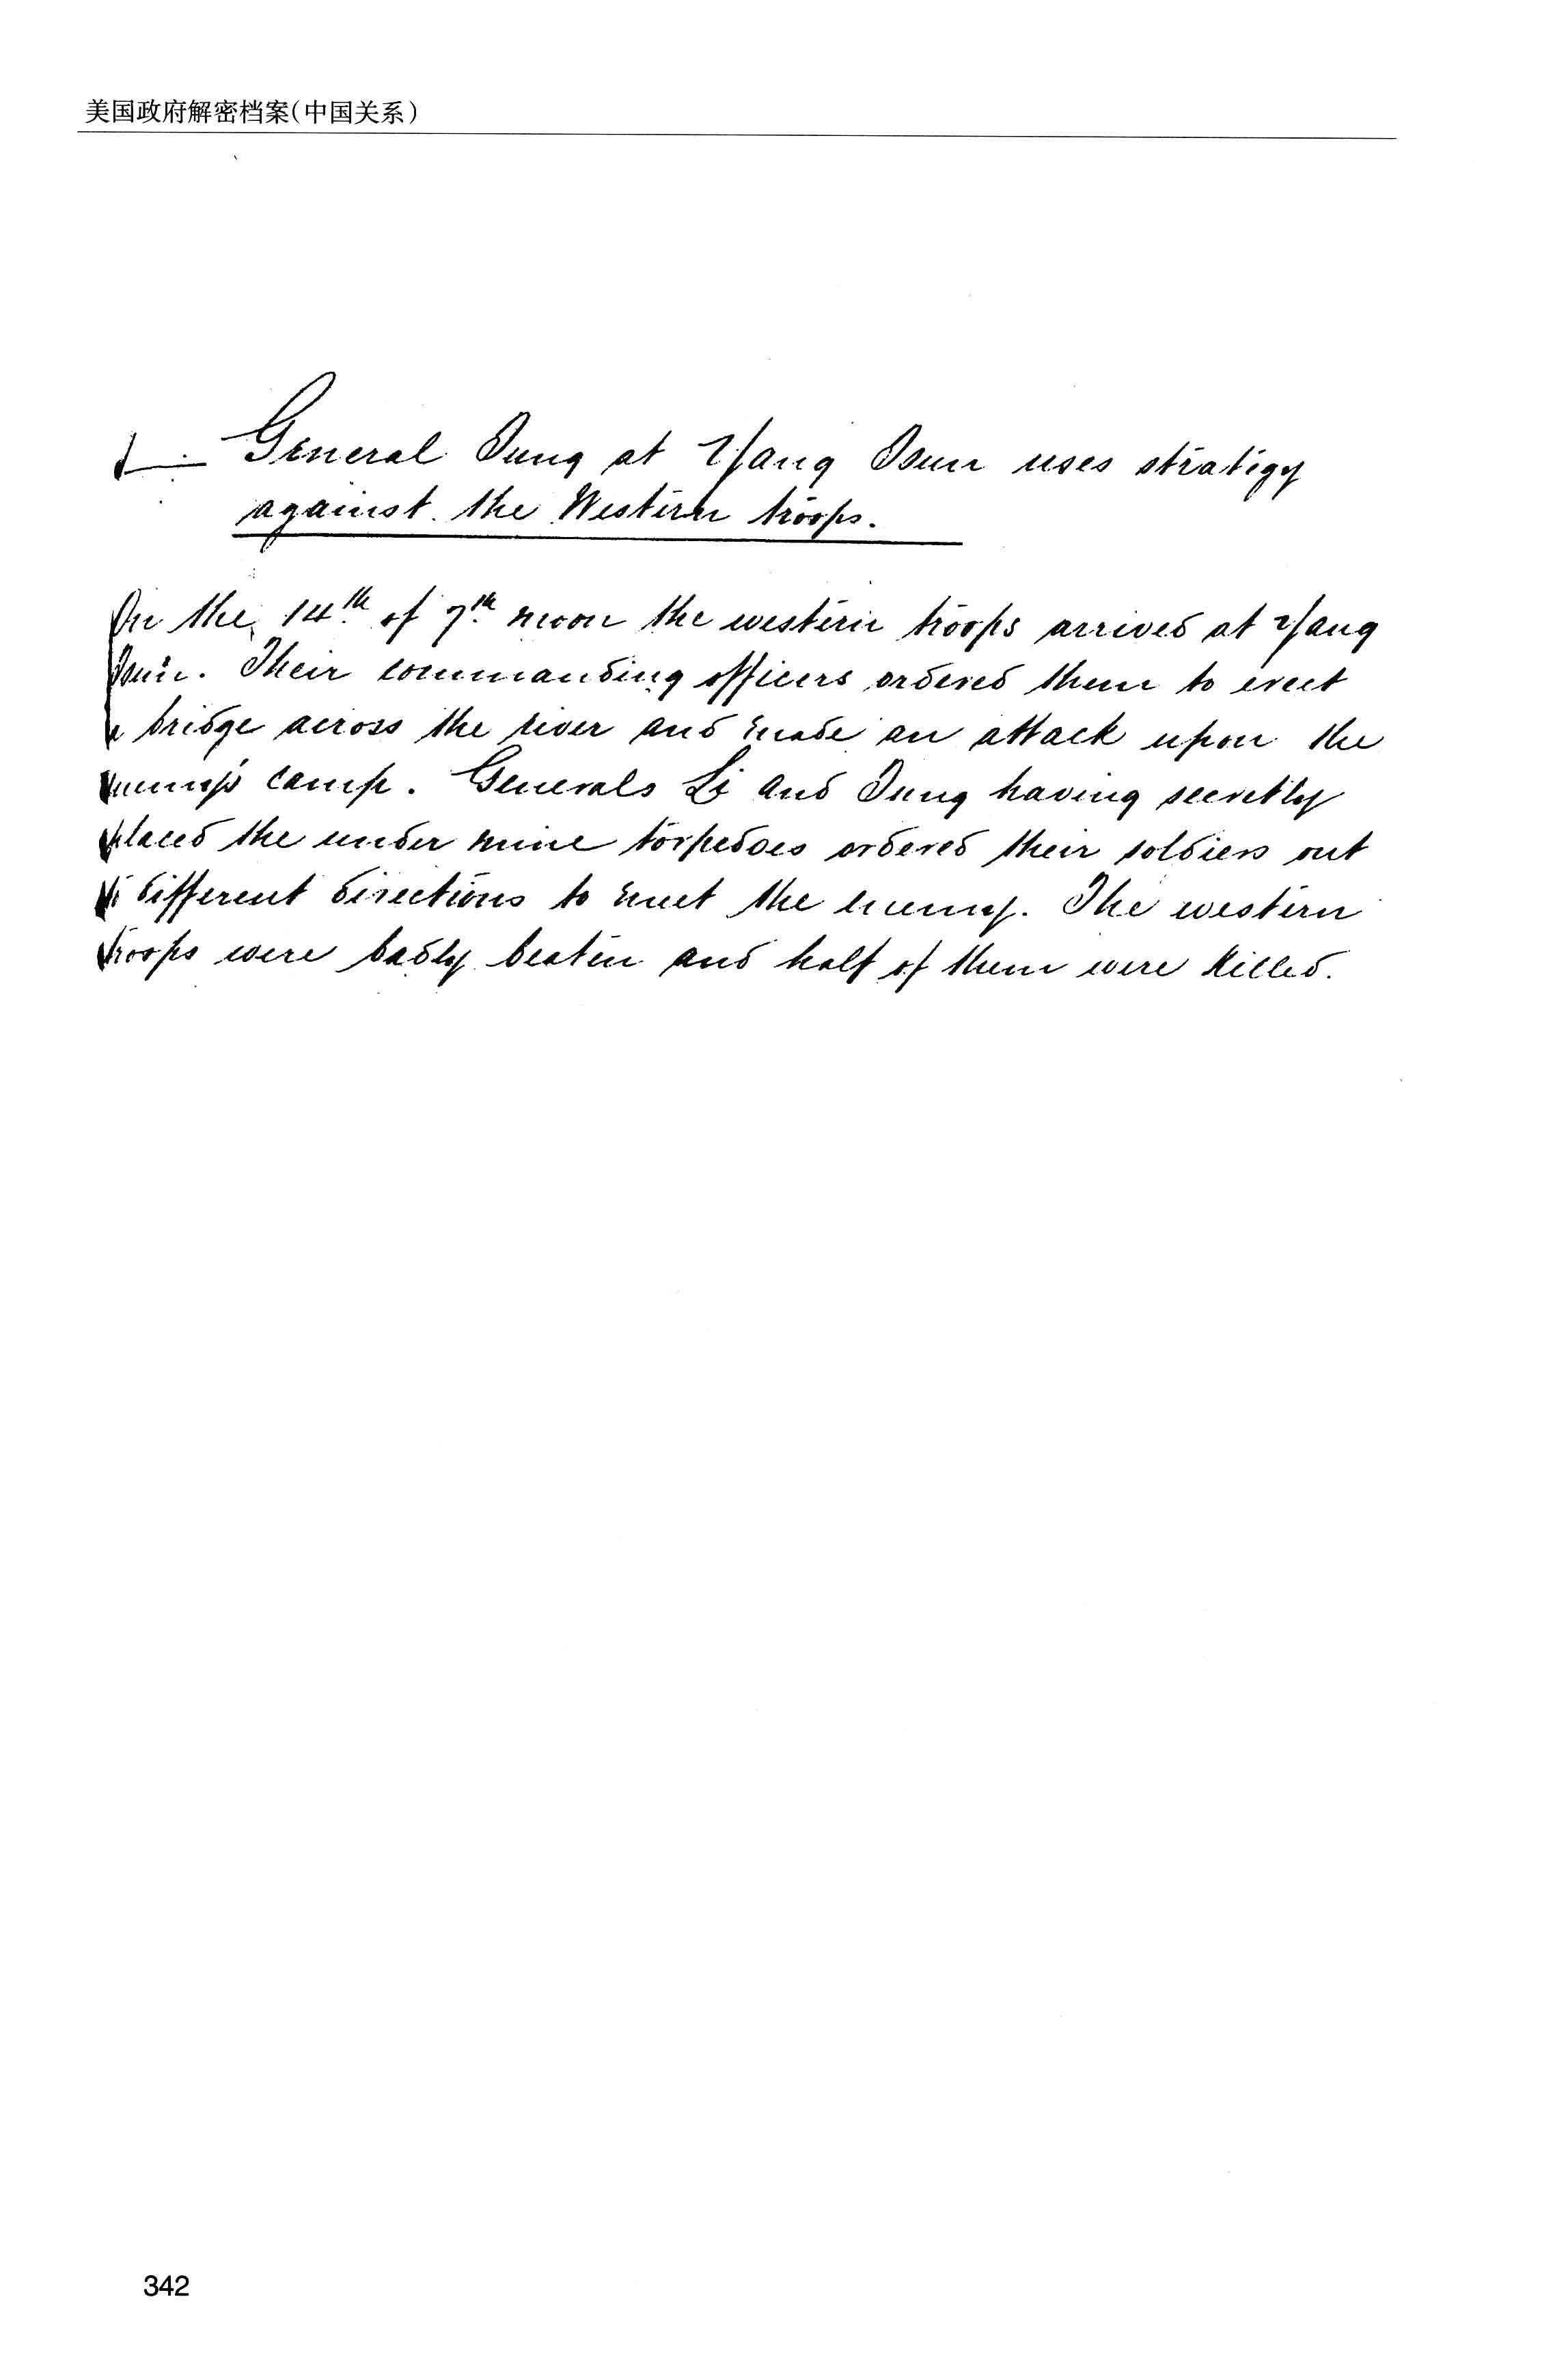 美国政府解密档案(中国关系)
General Tung at Yang Tsun uses stratigy
against the Western troops.
On the 14th of 7th moon the western troops arrived at Yang
Tsun. Their commanding officers ordered them to erect
a bridge across the river and made an attack upon the
enemy's camp. Generals Li and Tung having secretly
placed the under mine torpedoes ordered their soldiers out
different directions to meet the enemy. The western
troops were badly beaten and half of them were killed.
342